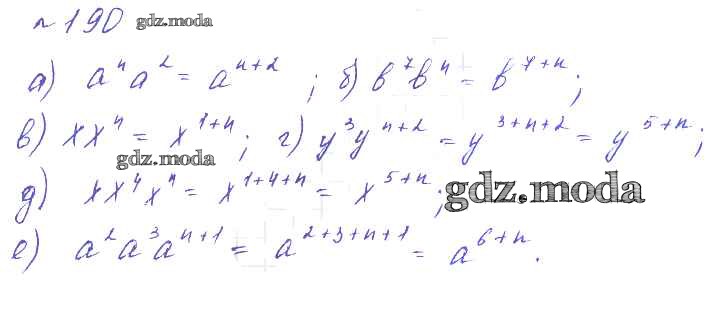 № 190 gdz.moda
а) aⁿa² = aⁿ⁺²; б) b⁷bⁿ = b⁷⁺ⁿ;
в) xxⁿ = x¹⁺ⁿ; г) y³yⁿ⁺² = y³⁺ⁿ⁺² = y⁵⁺ⁿ;
gdz.moda
д) xx⁴xⁿ = x¹⁺⁴⁺ⁿ = x⁵⁺ⁿ; gdz.moda
е) a²a³aⁿ⁺¹ = a²⁺³⁺ⁿ⁺¹ = a⁶⁺ⁿ.